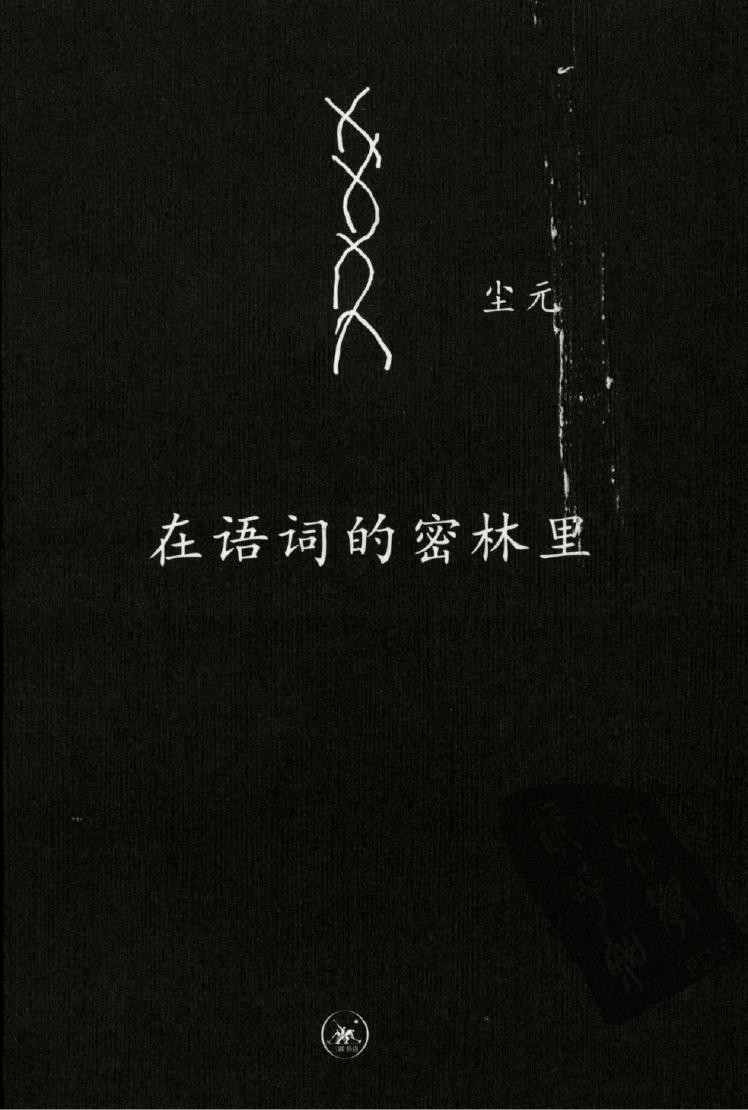 尘元
在语词的密林里
三联书店